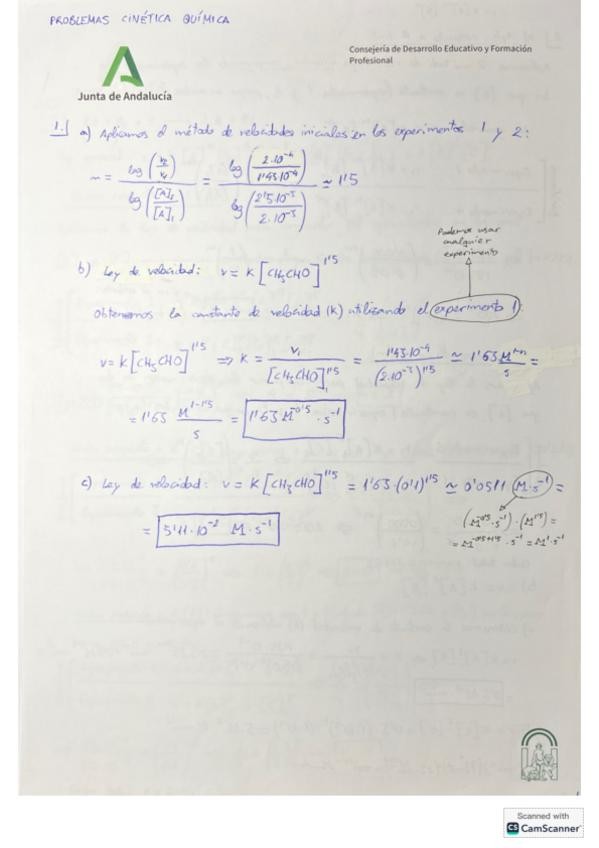 PROBLEMAS CINÉTICA QUÍMICA
Consejería de Desarrollo Educativo y Formación
Profesional
Junta de Andalucía
1.| a) Aplicamos el método de velocidades iniciales en los experimentos 1 y 2:
n = log (v₂/v₁) / log ([A]₂/[A]₁) = log (2·10⁻⁴ / 1'43·10⁻⁴) / log (2'5·10⁻³ / 2·10⁻³) ≃ 1'5
Podemos usar
cualquier
experimento
b) Ley de velocidad: v = k [CH₃CHO]^1'5
Obtenemos la constante de velocidad (k) utilizando el experimento 1:
v = k [CH₃CHO]^1'5 ⇒ k = v₁ / [CH₃CHO]₁^1'5 = 1'43·10⁻⁴ / (2·10⁻³)^1'5 ≃ 1'63 M^1-n / s =
= 1'63 M^1-1'5 / s = 1'63 M^-0'5 · s⁻¹
c) Ley de velocidad: v = k [CH₃CHO]^1'5 = 1'63·(0'1)^1'5 ≃ 0'0511 M·s⁻¹ =
= 5'11·10⁻² M·s⁻¹
(M^-0'5 · s⁻¹)·(M^1'5) =
= M^-0'5+1'5 · s⁻¹ = M¹·s⁻¹
Scanned with
CS CamScanner